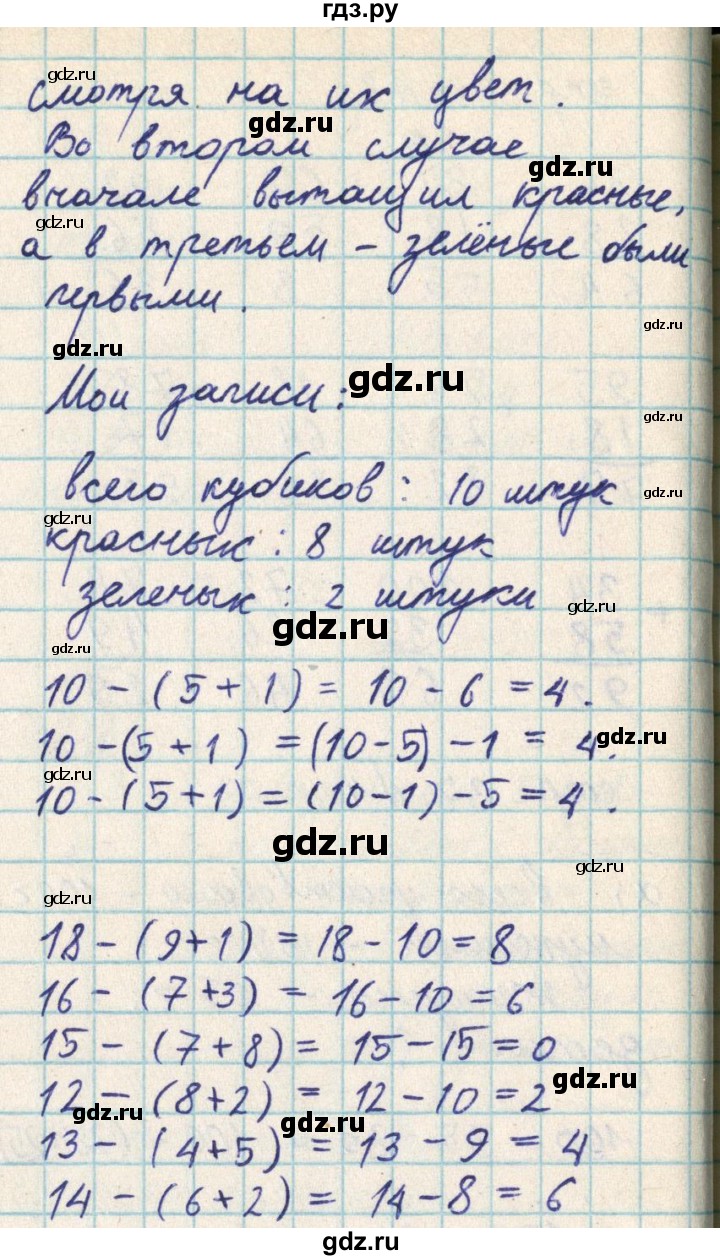 гдз.ру
gdz.ru
смотря на их цвет.
gdz.ru
Во втором случае
gdz.ru
вначале вытащил красные,
gdz.ru
а в третьем - зелёные были
первыми.
gdz.ru
gdz.ru
gdz.ru
Мои записи:
gdz.ru
всего кубиков: 10 штук
gdz.ru
gdz.ru
красных: 8 штук
зеленых: 2 штуки
gdz.ru
gdz.ru
gdz.ru
10 - (5 + 1) = 10 - 6 = 4.
10 - (5 + 1) = (10-5) - 1 = 4.
gdz.ru
gdz.ru
10 - (5+1) = (10-1) - 5 = 4.
gdz.ru
gdz.ru
gdz.ru
18 - (9+1) = 18 - 10 = 8
16 - (7+3) = 16 - 10 = 6
15 - (7+8) = 15 - 15 = 0
gdz.ru
12 - (8+2) = 12 - 10 = 2
gdz.ru
gdz.ru
13 - (4+5) = 13 - 9 = 4
14 - (6+2) = 14 - 8 = 6
gdz.ru